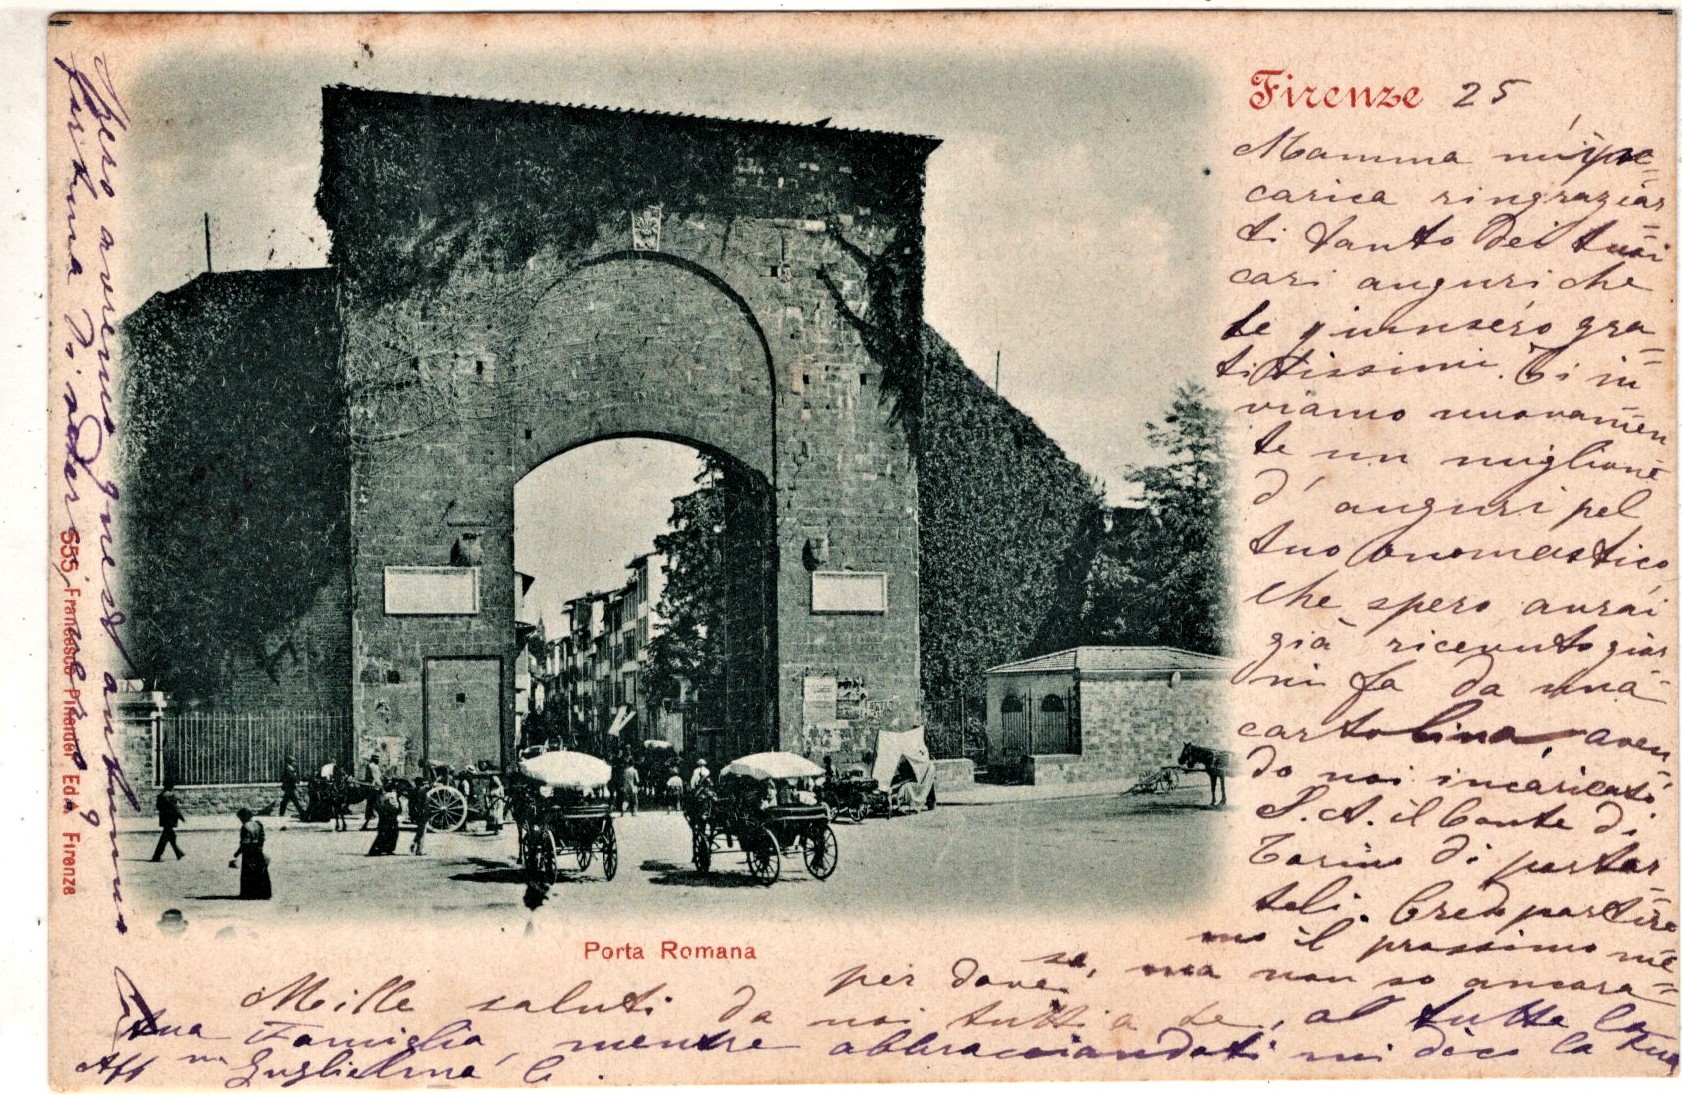 Firenze 25
Mamma m'in=
carica ringraziar=
ti tanto dei tuoi
cari auguri che
le giunsero gra=
titissimi. Ti in=
viamo nuovamen=
te un miglione
d'auguri pel
tuo onomastico,
che spero avrai
già ricevuto gior=
ni fa da una
cartolina, aven=
do noi incaricato
S. A. il Conte di
Torino di portar=
teli. Credo partire=
mo il prossimo me=
se, ma non so ancora
per dove.
Mille saluti da noi tutti a te, al tutta la
tua Famiglia, mentre abbracciandoti mi dico la tua
Aff ma Guglielmina C.
Spero avremo quest'autunno
fortuna di veder
Porta Romana
555, Francesco Pineider Ed., Firenze